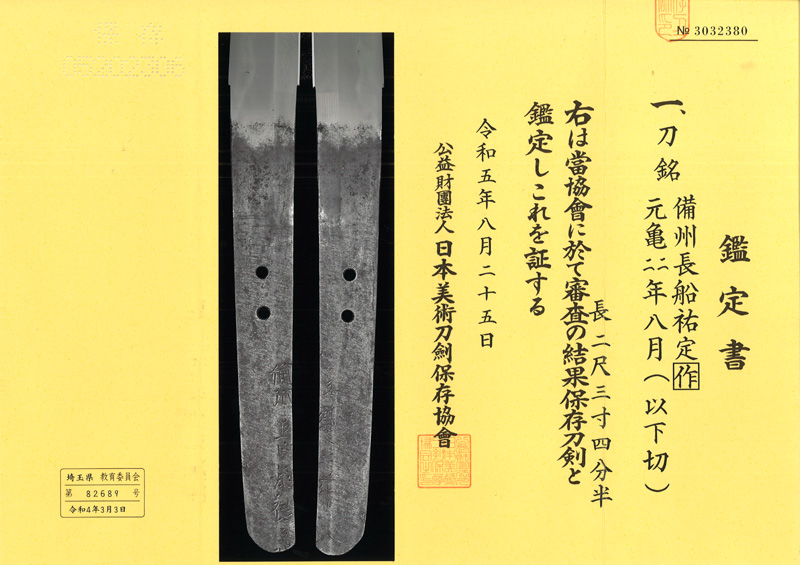 № 3032380
鑑定書
一、刀 銘 備州長船祐定作
元亀二二年八月(以下切)
長二尺三寸四分半
右は當協會に於て審査の結果保存刀剣と
鑑定しこれを証する
令和五年八月二十五日
公益財團法人 日本美術刀劍保存協會
埼玉県 教育委員会
第 82689 号
令和4年3月3日